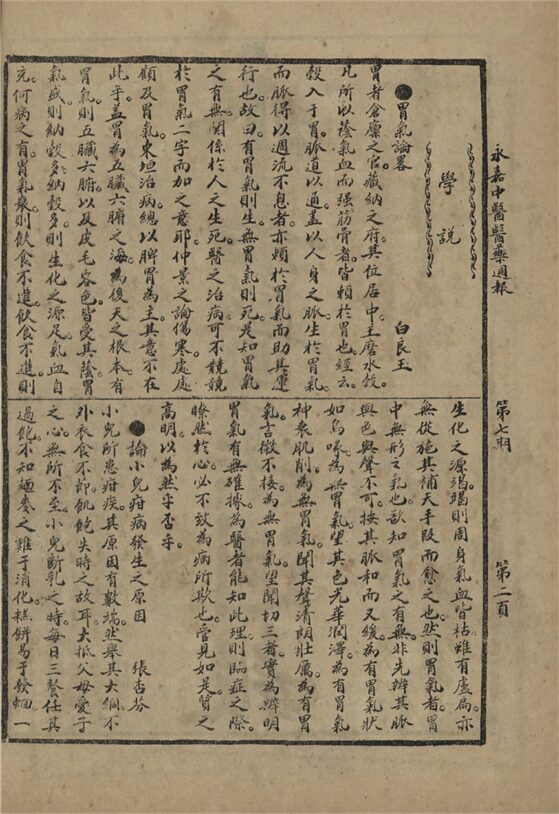 永嘉中醫醫藥週報　第七期　第二頁
學說
●胃氣論畧　白良玉
胃者倉廩之官。藏納之府。其位居中。主磨水穀。
凡所以蔭氣血而强筋骨者。皆賴於胃也。經云。
穀入于胃。脈道以通。盖以人身之脈。生於胃氣。
而脈得以週流不息者。亦賴於胃氣而助其運
行也。故曰。有胃氣則生。無胃氣則死。是知胃氣
之有無。關係於人之生死。醫之治病。可不競競
於胃氣二字而加之意耶。仲景之論傷寒。處處
顧及胃氣。東垣治病。總以脾胃為主。其意不在
此乎。盖胃為五臟六腑之海。為後天之根本。有
胃氣。則五臟六腑。以及皮毛容色。皆受其蔭。胃
氣盛則納穀多。納穀多。則生化之源足。氣血自
充。何病之有。胃氣衰。則飲食不進。飲食不進。則
生化之源竭。竭則周身氣血皆枯。雖有盧扁。亦
無從施其補天手段而愈之也。然則胃氣者。胃
中無形之氣也。欲知胃氣之有無。非先辨其脈
與色與聲不可。按其脈和而又緩。為有胃氣。狀
如鳥喙。為無胃氣。望其色光華潤澤。為有胃氣
神衰肌削。為無胃氣。聞其聲清朗壯厲。為有胃
氣。言微不接。為無胃氣。望聞切三者。實為辨明
胃氣有無確據。為醫者能知此理。則臨症之際。
瞭然於心。必不致為病所欺也。管見如是。質之
高明。以為然乎否乎。
●論小兒疳病發生之原因　張古芬
小兒所患疳疾。其原因有數端。然舉其大綱。不
外衣食不節。飢飽失時之故耳。大抵父母愛子
之心。無所不至。小兒斷乳之時。每日三餐任其
過飽。不知麵麥之難于消化。糕餅易于發蛔。一